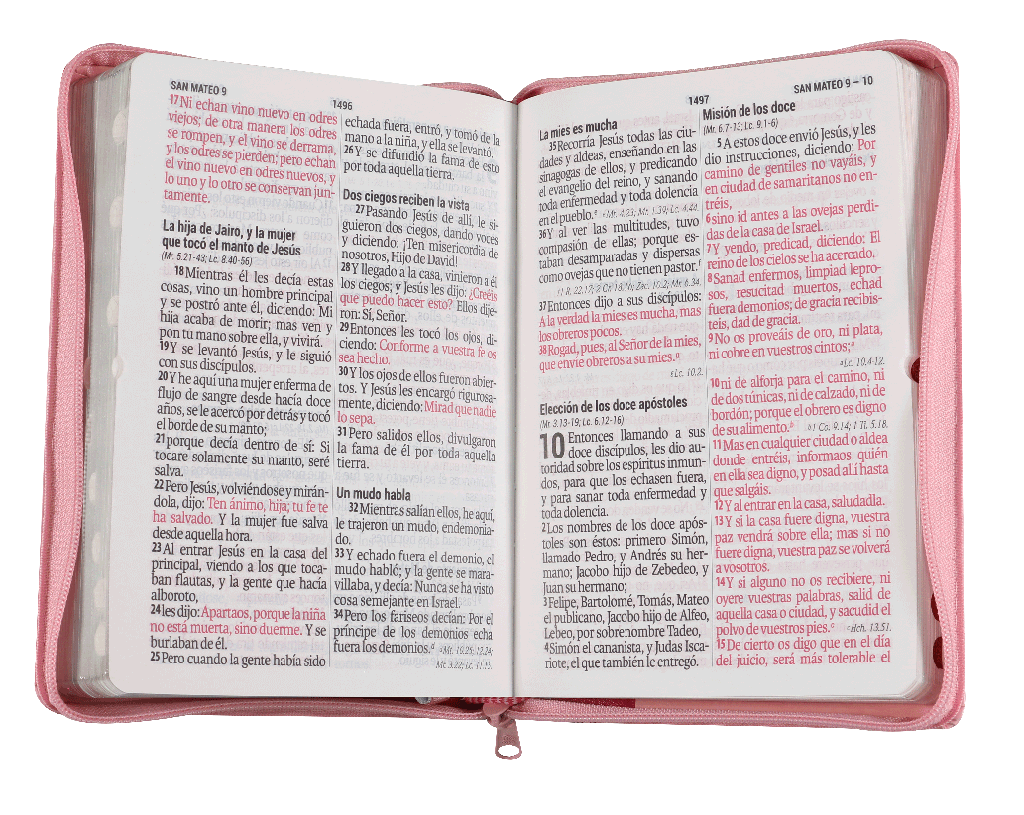 SAN MATEO 9
1496
17Ni echan vino nuevo en odres
viejos; de otra manera los odres
se rompen, y el vino se derrama,
y los odres se pierden; pero echan
el vino nuevo en odres nuevos, y
lo uno y lo otro se conservan jun-
tamente.
La hija de Jairo, y la mujer
que tocó el manto de Jesús
(Mr. 5.21-43; Lc. 8.40-56)
18Mientras él les decía estas
cosas, vino un hombre principal
y se postró ante él, diciendo: Mi
hija acaba de morir; mas ven y
pon tu mano sobre ella, y vivirá.
19Y se levantó Jesús, y le siguió
con sus discípulos.
20Y he aquí una mujer enferma de
flujo de sangre desde hacía doce
años, se le acercó por detrás y tocó
el borde de su manto;
21porque decía dentro de sí: Si
tocare solamente su manto, seré
salva.
22Pero Jesús, volviéndose y mirán-
dola, dijo: Ten ánimo, hija; tu fe te
ha salvado. Y la mujer fue salva
desde aquella hora.
23Al entrar Jesús en la casa del
principal, viendo a los que toca-
ban flautas, y la gente que hacía
alboroto,
24les dijo: Apartaos, porque la niña
no está muerta, sino duerme. Y se
burlaban de él.
25Pero cuando la gente había sido
echada fuera, entró, y tomó de la
mano a la niña, y ella se levantó.
26Y se difundió la fama de esto
por toda aquella tierra.
Dos ciegos reciben la vista
27Pasando Jesús de allí, le si-
guieron dos ciegos, dando voces
y diciendo: ¡Ten misericordia de
nosotros, Hijo de David!
28Y llegado a la casa, vinieron a él
los ciegos; y Jesús les dijo: ¿Creéis
que puedo hacer esto? Ellos dije-
ron: Sí, Señor.
29Entonces les tocó los ojos, di-
ciendo: Conforme a vuestra fe os
sea hecho.
30Y los ojos de ellos fueron abier-
tos. Y Jesús les encargó rigurosa-
mente, diciendo: Mirad que nadie
lo sepa.
31Pero salidos ellos, divulgaron
la fama de él por toda aquella
tierra.
Un mudo habla
32Mientras salían ellos, he aquí,
le trajeron un mudo, endemonia-
do.
33Y echado fuera el demonio, el
mudo habló; y la gente se mara-
villaba, y decía: Nunca se ha visto
cosa semejante en Israel.
34Pero los fariseos decían: Por el
príncipe de los demonios echa
fuera los demonios.
1497
SAN MATEO 9 – 10
La mies es mucha
35Recorría Jesús todas las ciu-
dades y aldeas, enseñando en las
sinagogas de ellos, y predicando
el evangelio del reino, y sanando
toda enfermedad y toda dolencia
en el pueblo.
36Y al ver las multitudes, tuvo
compasión de ellas; porque es-
taban desamparadas y dispersas
como ovejas que no tienen pastor.
37Entonces dijo a sus discípulos:
A la verdad la mies es mucha, mas
los obreros pocos.
38Rogad, pues, al Señor de la mies,
que envíe obreros a su mies.
Lc. 10.2.
Elección de los doce apóstoles
(Mr. 3.13-19; Lc. 6.12-16)
10 Entonces llamando a sus
doce discípulos, les dio au-
toridad sobre los espíritus inmun-
dos, para que los echasen fuera,
y para sanar toda enfermedad y
toda dolencia.
2Los nombres de los doce após-
toles son éstos: primero Simón,
llamado Pedro, y Andrés su her-
mano; Jacobo hijo de Zebedeo, y
Juan su hermano;
3Felipe, Bartolomé, Tomás, Mateo
el publicano, Jacobo hijo de Alfeo,
Lebeo, por sobrenombre Tadeo,
4Simón el cananista, y Judas Isca-
riote, el que también le entregó.
Misión de los doce
(Mr. 6.7-13; Lc. 9.1-6)
5A estos doce envió Jesús, y les
dio instrucciones, diciendo: Por
camino de gentiles no vayáis, y
en ciudad de samaritanos no en-
tréis,
6sino id antes a las ovejas perdi-
das de la casa de Israel.
7Y yendo, predicad, diciendo: El
reino de los cielos se ha acercado.
8Sanad enfermos, limpiad lepro-
sos, resucitad muertos, echad
fuera demonios; de gracia recibis-
teis, dad de gracia.
9No os proveáis de oro, ni plata,
ni cobre en vuestros cintos;
Lc. 10.4-12.
10ni de alforja para el camino, ni
de dos túnicas, ni de calzado, ni de
bordón; porque el obrero es digno
de su alimento. 1 Co. 9.14; 1 Ti. 5.18.
11Mas en cualquier ciudad o aldea
donde entréis, informaos quién
en ella sea digno, y posad allí hasta
que salgáis.
12Y al entrar en la casa, saludadla.
13Y si la casa fuere digna, vuestra
paz vendrá sobre ella; mas si no
fuere digna, vuestra paz se volverá
a vosotros.
14Y si alguno no os recibiere, ni
oyere vuestras palabras, salid de
aquella casa o ciudad, y sacudid el
polvo de vuestros pies. Hch. 13.51.
15De cierto os digo que en el día
del juicio, será más tolerable el